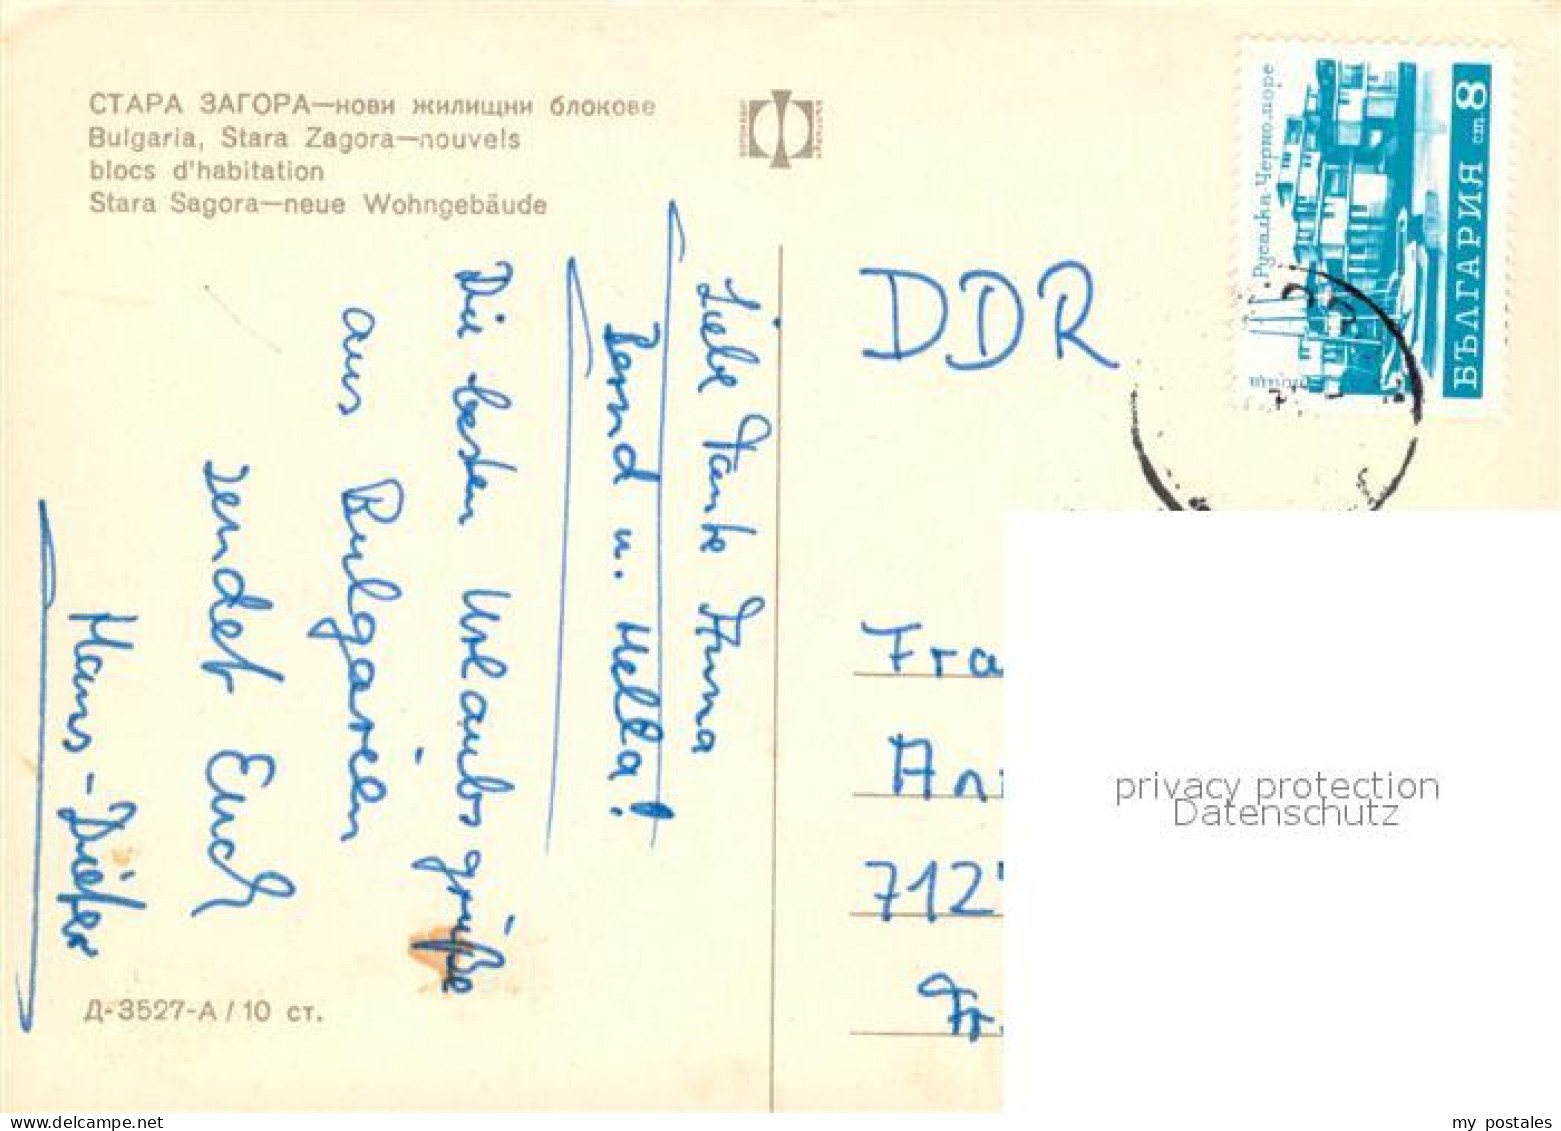 СТАРА ЗАГОРА—нови жилищни блокове
Bulgaria, Stara Zagora—nouvels
blocs d'habitation
Stara Sagora—neue Wohngebäude
Liebe Tante Anna
Bernd u. Hella!
Die besten Urlaubsgrüße
aus Bulgarien
sendet Euch
Hans-Dieter
Д-3527-А/10 ст.
Русалка-Черноморие
БЪЛГАРИЯ
8
ст
DDR
Fra
An
712
Fr
privacy protection
Datenschutz
www.delcampe.net
my_postales